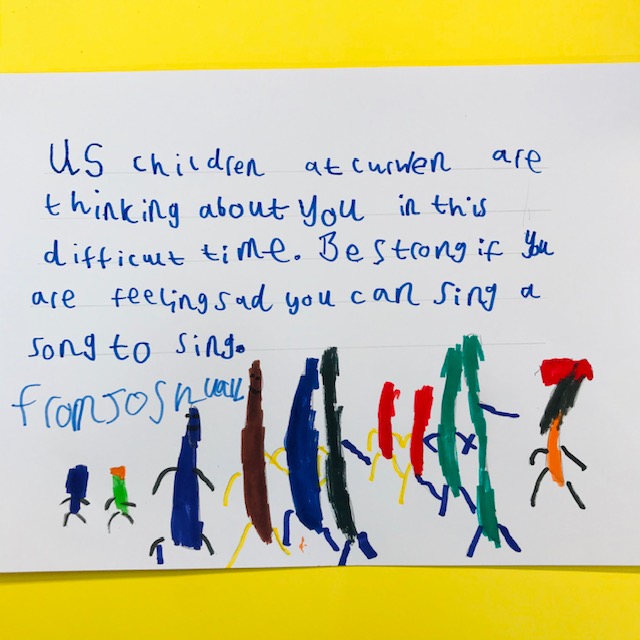 US children at curwen are
thinking about you in this
difficult time. Be strong if you
are feeling sad you can sing a
song to sing.
from Joshuall